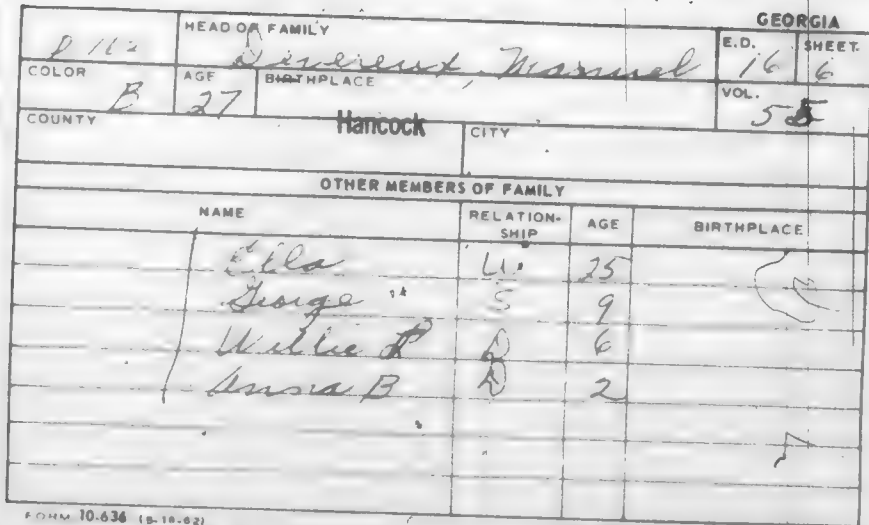 GEORGIA
HEAD OF FAMILY
Devereux, Manuel
E.D. 16
SHEET 6
COLOR B
AGE 27
BIRTHPLACE
VOL. 55
COUNTY Hancock
CITY
OTHER MEMBERS OF FAMILY
NAME RELATION-SHIP AGE BIRTHPLACE
Ella W 25
George S 9
Willie D 6
Anna B D 2
FORM 10-636 (5-18-62)